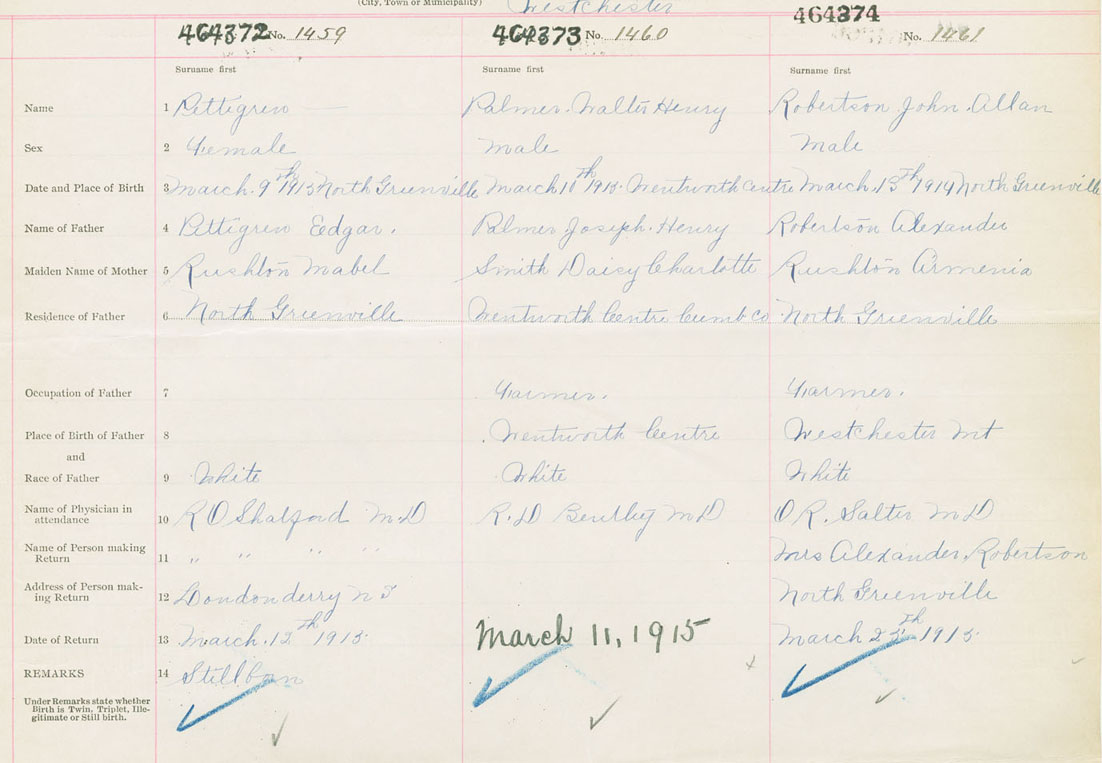 (City, Town or Municipality) Westchester
464372 No. 1459 464373 No. 1460 464374 No. 1461
Surname first Surname first Surname first
Name 1 Pettigrew — Palmer Walter Henry Robertson John Allan
Sex 2 Female Male Male
Date and Place of Birth 3 March 9th 1915 North Greenville March 10th 1915 Wentworth Centre March 13th 1914 North Greenville
Name of Father 4 Pettigrew Edgar. Palmer Joseph Henry Robertson Alexander
Maiden Name of Mother 5 Rushton Mabel Smith Daisy Charlotte Rushton Armenia
Residence of Father 6 North Greenville Wentworth Centre Cumb Co North Greenville
Occupation of Father 7 Farmer. Farmer.
Place of Birth of Father 8 Wentworth Centre Westchester Mt
and
Race of Father 9 White White White
Name of Physician in R O Shatford M.D R. D Bentley M D O R. Salter M D
attendance 10
Name of Person making Mrs Alexander Robertson
Return 11 " " " "
Address of Person mak-
ing Return 12 Londonderry N S North Greenville
Date of Return 13 March 12th 1915 March 11, 1915 March 1915
REMARKS 14 Stillborn
Under Remarks state whether
Birth is Twin, Triplet, Ille-
gitimate or Still birth.